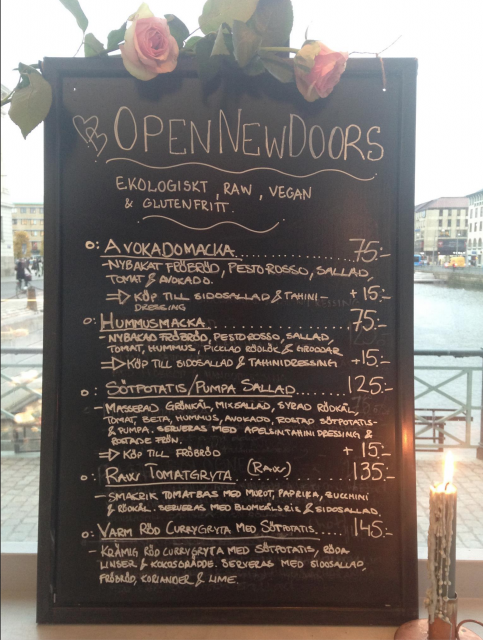 OPENNEWDOORS
EKOLOGISKT, RAW, VEGAN
& GLUTENFRITT.
o: AVOKADOMACKA.......... 75:-
-NYBAKAT FRÖBRÖD, PESTO ROSSO, SALLAD,
TOMAT & AVOKADO.
=> KÖP TILL SIDOSALLAD & TAHINI- + 15:-
DRESSING
o: HUMMUSMACKA.......... 75:-
- NYBAKAD FRÖBRÖD, PESTO ROSSO, SALLAD,
TOMAT, HUMMUS, PICKLAD RÖDLÖK & GRODDAR
=> KÖP TILL SIDOSALLAD & TAHINIDRESSING +15:-
o: SÖTPOTATIS/PUMPA SALLAD..... 125:-
- MASSERAD GRÖNKÅL, MIXSALLAD, SYRAD RÖDKÅL,
TOMAT, BETA, HUMMUS, AVOKADO, ROSTAD SÖTPOTATIS-
& PUMPA. SERVERAS MED APELSINTAHINI DRESSING &
ROSTADE FRÖN.
=> KÖP TILL FRÖBRÖD + 15:-
o: RAW TOMATGRYTA (RAW) ..... 135:-
- SMAKRIK TOMATBAS MED MOROT, PAPRIKA, ZUCCHINI
& RÖDKÅL. SERVERAS MED BLOMKÅLSRIS & SIDOSALLAD.
o: VARM RÖD CURRYGRYTA MED SÖTPOTATIS.... 145:-
- KRÄMIG RÖD CURRYGRYTA MED SÖTPOTATIS, RÖDA
LINSER & KOKOSGRÄDDE. SERVERAS MED SIDOSALLAD,
FRÖBRÖD, KORIANDER & LIME.